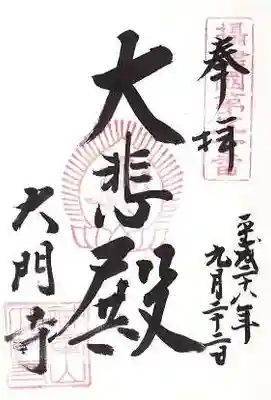 攝津國第
奉拝
平成二十八年
九月二十二日
大悲殿
大門寺